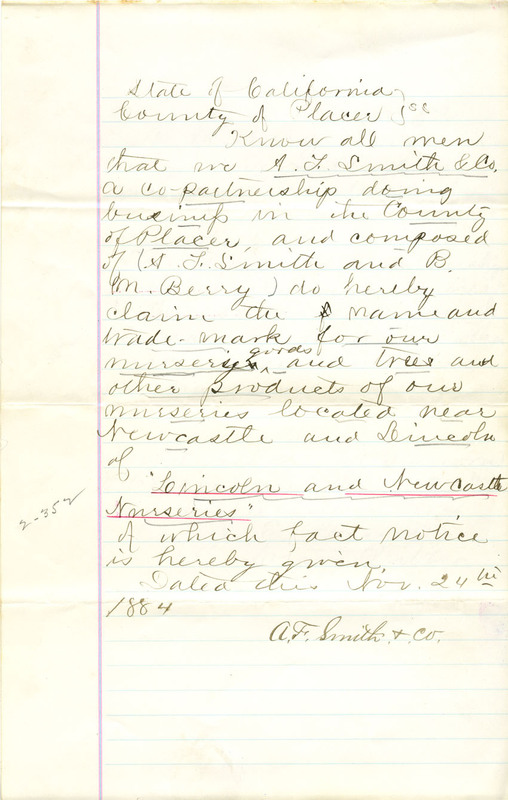 State of California }
County of Placer } ss
Know all men
that we A. F. Smith & Co.
a co-partnership doing
business in the County
of Placer, and composed
of (A. F. Smith and B.
M. Berry) do hereby
claim the name and
trade-mark for our
nursery goods and trees and
other products of our
nurseries located near
Newcastle and Lincoln
of
"Lincoln and Newcastle
Nurseries"
2-352
of which fact notice
is hereby given.
Dated this Nov. 24th
1884
A. F. Smith & Co.